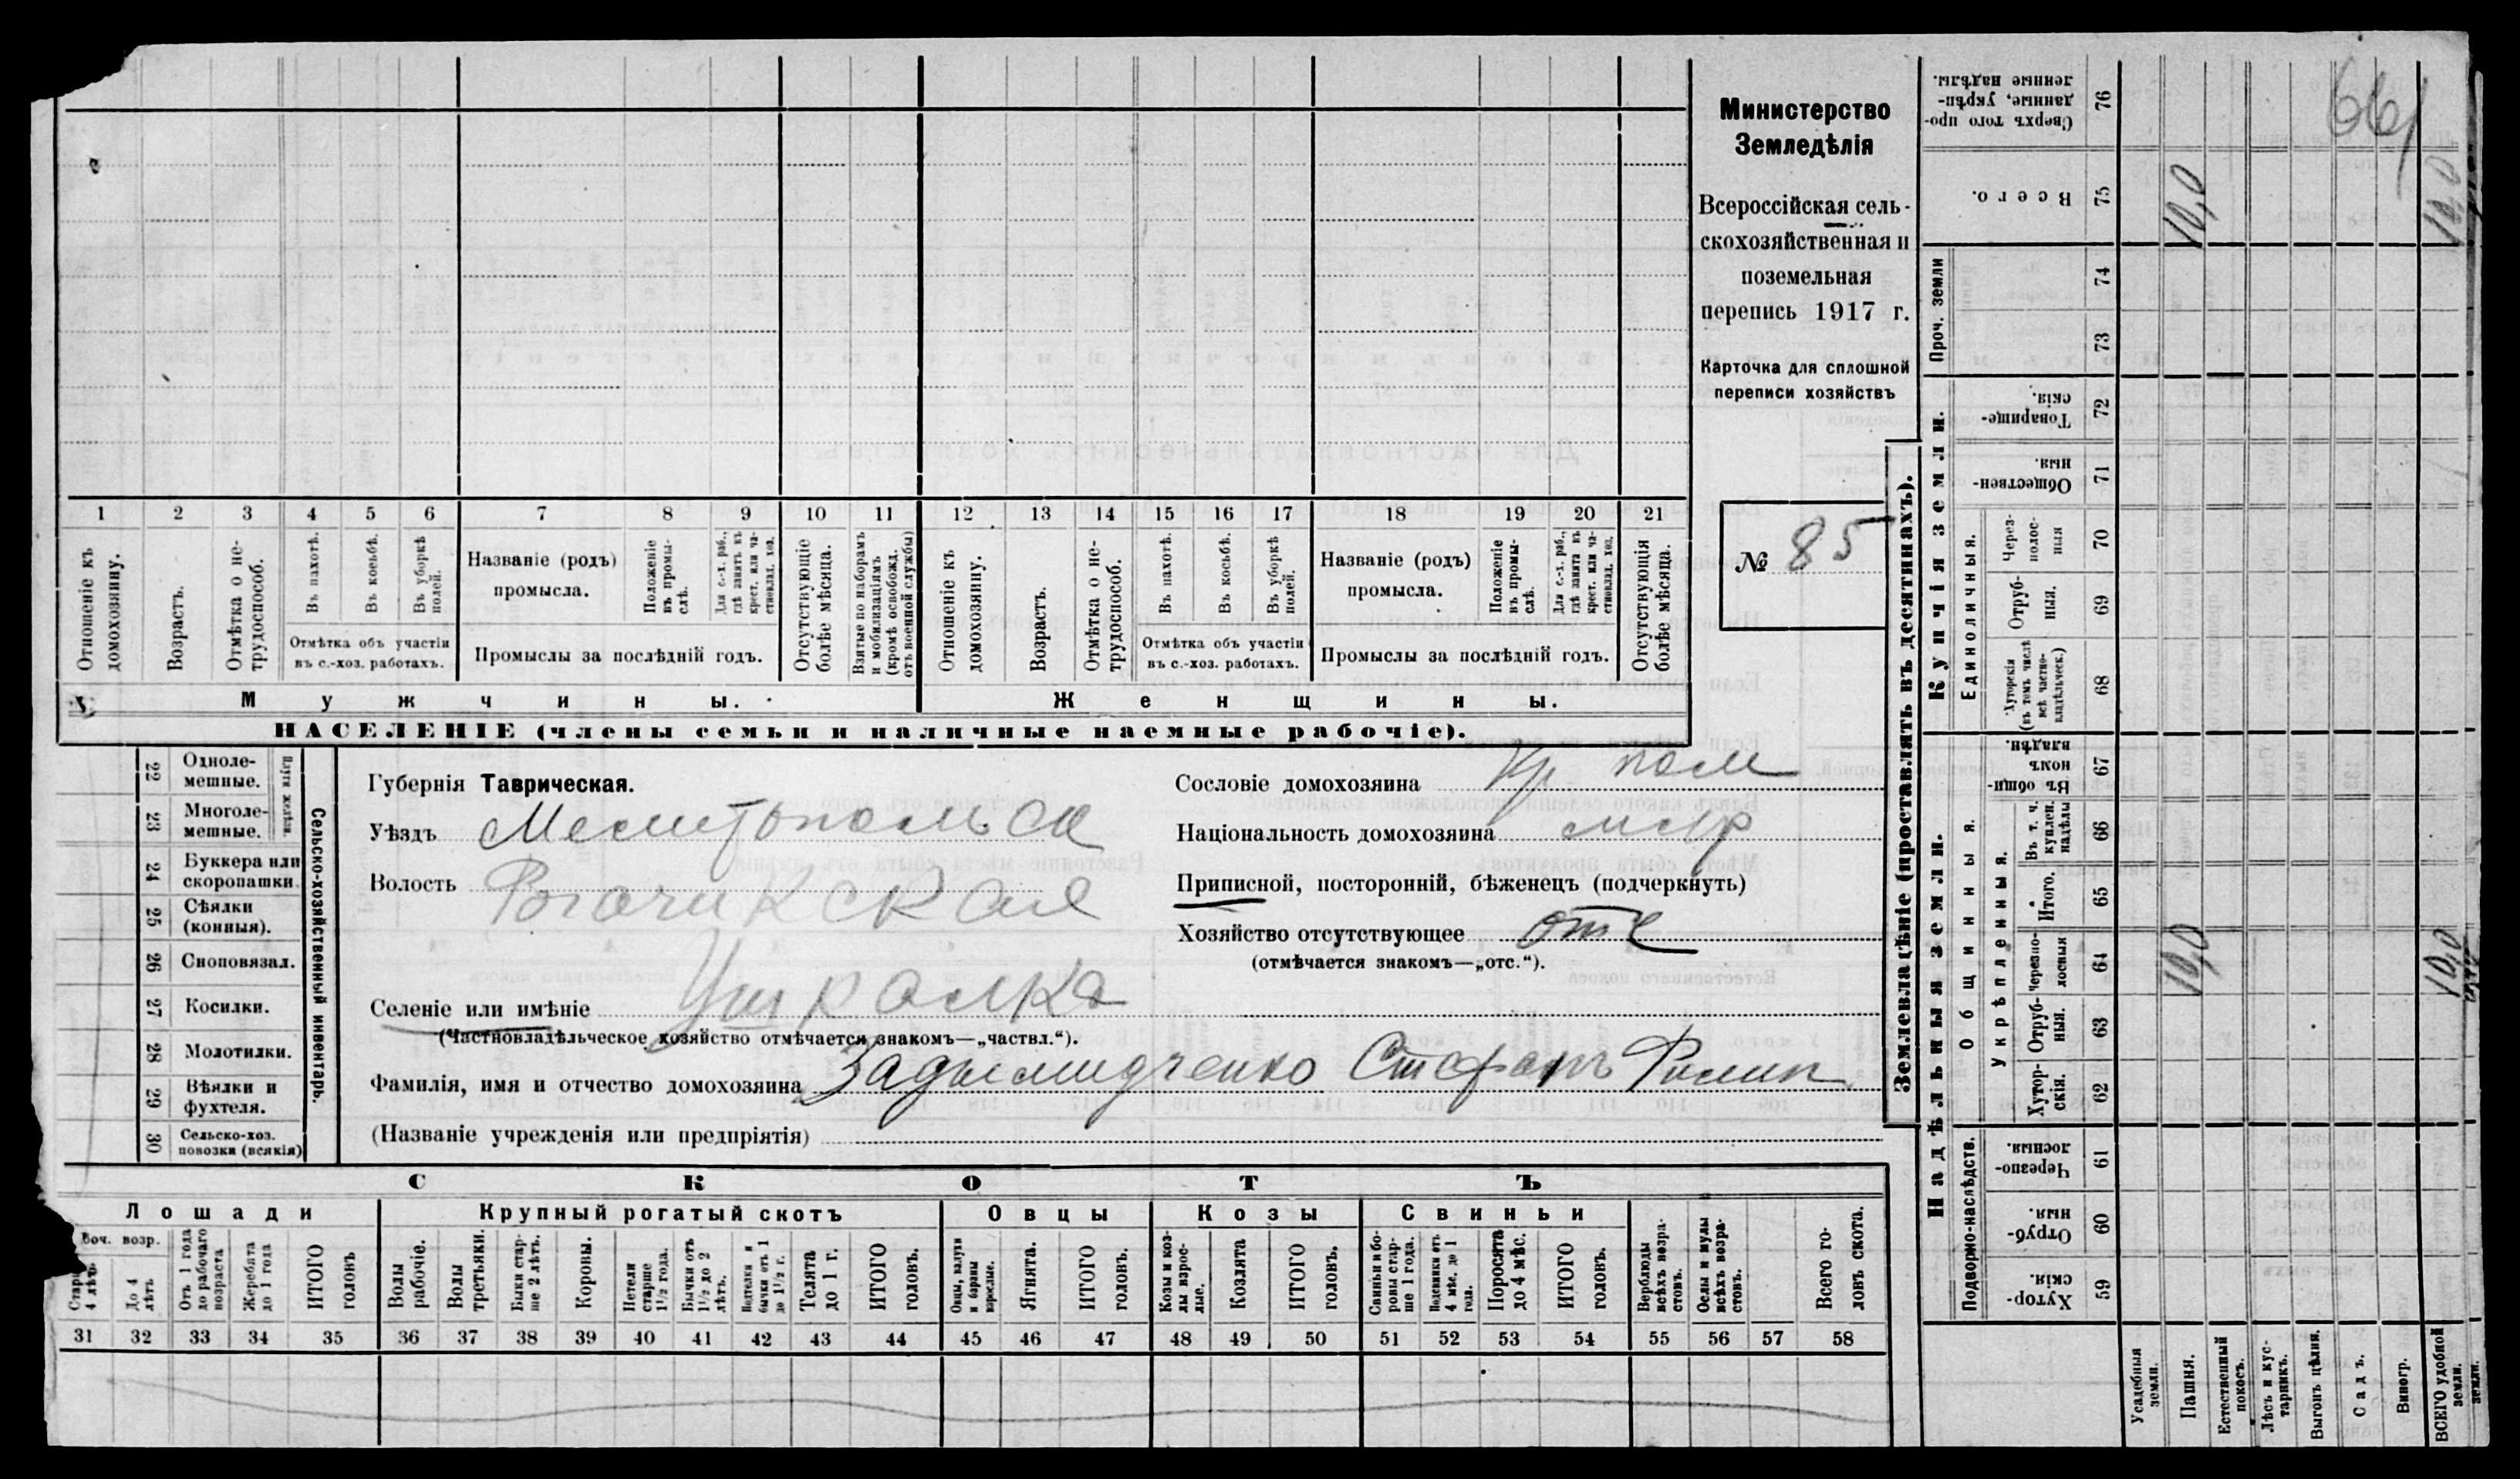 Министерство
Земледѣлія
Всероссійская сель-
скохозяйственная и
поземельная
перепись 1917 г.
Карточка для сплошной
переписи хозяйствъ
№ 85
1 2 3 4 5 6 7 8 9 10 11 12 13 14 15 16 17 18 19 20 21
Отношеніе къ домохозяину.
Возрастъ.
Отмѣтка о не-трудоспособ.
Въ пахотѣ.
Въ косьбѣ.
Въ уборкѣ полей.
Отмѣтка объ участіи
въ с.-хоз. работахъ.
Названіе (родъ)
промысла.
Положеніе въ промы-слѣ.
Для с.-х. раб., гдѣ занятъ въ крест. или ча-стновлад. хоз.
Промыслы за послѣдній годъ.
Отсутствующіе болѣе мѣсяца.
Взятые по наборамъ и мобилизаціямъ (кромѣ освобожд. отъ военной службы)
Отношеніе къ домохозяину.
Возрастъ.
Отмѣтка о не-трудоспособ.
Въ пахотѣ.
Въ косьбѣ.
Въ уборкѣ полей.
Отмѣтка объ участіи
въ с.-хоз. работахъ.
Названіе (родъ)
промысла.
Положеніе въ промы-слѣ.
Для с.-х. раб., гдѣ занятъ въ крест. или ча-стновлад. хоз.
Промыслы за послѣдній годъ.
Отсутствующія болѣе мѣсяца.
Мужчины.
Женщины.
НАСЕЛЕНІЕ (члены семьи и наличные наемные рабочіе).
22 Одноле-мешные.
23 Многоле-мешные.
24 Буккера или скоропашки.
25 Сѣялки (конныя).
26 Сноповязал.
27 Косилки.
28 Молотилки.
29 Вѣялки и фухтеля.
30 Сельско-хоз. повозки (всякія)
Сельско-хозяйственный инвентарь.
Губернія Таврическая.
Уѣздъ Мелитопольск
Волость Рогачикская
Селеніе или имѣніе Ушкалка
(Частновладѣльческое хозяйство отмѣчается знакомъ—„частвл.“).
Фамилія, имя и отчество домохозяина
(Названіе учрежденія или предпріятія)
Сословіе домохозяина Кр
Національность домохозяина млр
Приписной, посторонній, бѣженецъ (подчеркнуть)
Хозяйство отсутствующее отс
(отмѣчается знакомъ—„отс.“).
СКОТЪ
Лошади
Крупный рогатый скотъ
Овцы
Козы
Свиньи
До 4 лѣтъ
Отъ 1 года до рабочаго возраста
Жеребята до 1 года
ИТОГО головъ
Волы рабочіе.
Волы третьяки.
Быки стар-ше 2 лѣтъ.
Коровы.
Нетели старше 1½ года.
Бычки отъ 1½ до 2 лѣтъ.
Нетелки и бычки отъ 1 до 1½ г.
Телята до 1 г.
ИТОГО головъ.
Овцы, валухи и бараны взрослые.
Ягнята.
ИТОГО головъ.
Козы и коз-лы взрос-лые.
Козлята
ИТОГО головъ.
Свиньи и бо-ровы стар-ше 1 года.
Подсвинки отъ 4 мѣс. до 1 года.
Поросята до 4 мѣс.
ИТОГО головъ.
Верблюды всѣхъ возра-стовъ.
Ослы и мулы всѣхъ возра-стовъ.
Всего го-ловъ скота.
31 32 33 34 35 36 37 38 39 40 41 42 43 44 45 46 47 48 49 50 51 52 53 54 55 56 57 58
Землевладѣніе (проставлять въ десятинахъ).
Купчія земли.
Надѣльныя земли.
Сверхъ того про-данные, укрѣп-ленные надѣлы. 76
Всего. 75 10,0 10,0
Проч. земли
74
73
Товарище-скія. 72
Обществен-ныя. 71
Единоличныя.
Через-полос-ныя 70
Отруб-ныя. 69
Хуторскія (въ томъ числѣ всѣ частно-владѣльческ.) 68
Въ общи-номъ владѣн. 67
Общинныя.
Укрѣпленныя.
Въ т. ч. куплен. надѣлы 66
Итого. 65
Черезпо-лосныя 64 10,0 10,0
Отруб-ныя. 63
Хутор-скія. 62
Подворно-наслѣдств.
Черезпо-лосныя. 61
Отруб-ныя. 60
Хутор-скія. 59
Усадебныя земли.
Пашня.
Естественный покосъ.
Лѣсъ и кус-тарникъ.
Выгонъ цѣлин.
Садъ.
Виногр.
ВСЕГО удобной земли.